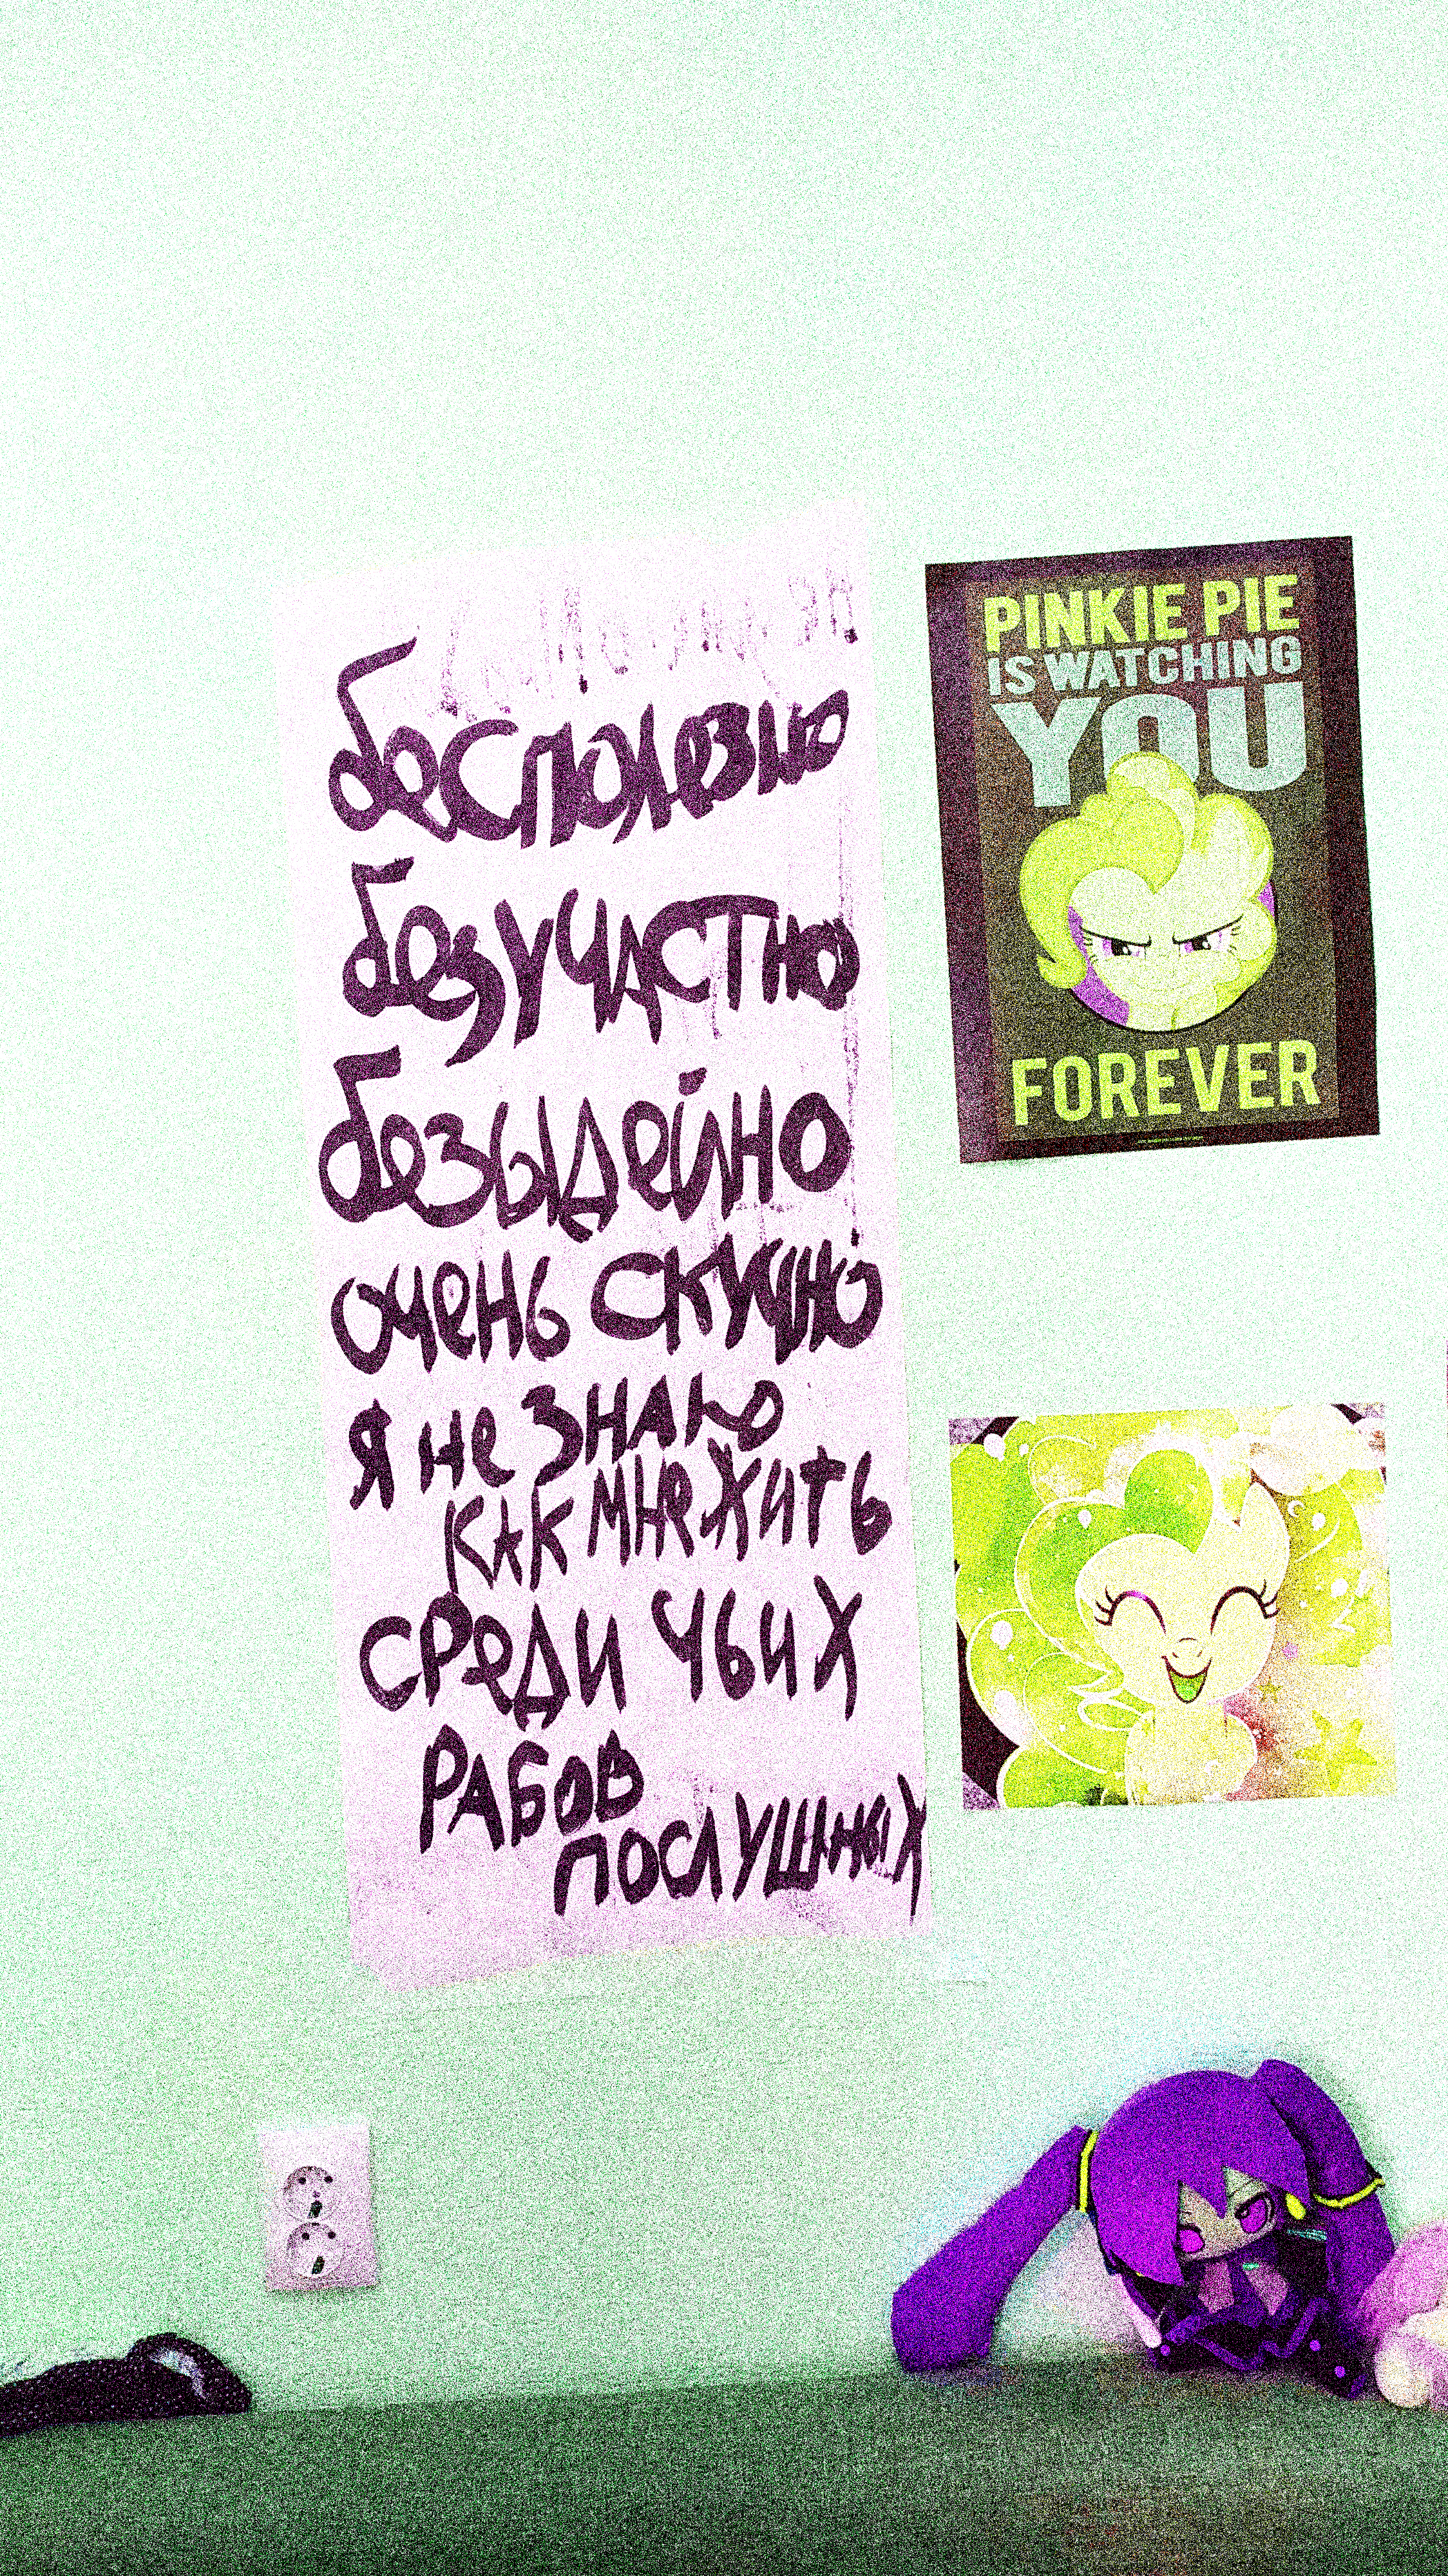 бесполезно
безучастно
безыдейно
очень скучно
я не знаю
как мне жить
среди чьих
рабов
послушных
PINKIE PIE
IS WATCHING
YOU
FOREVER